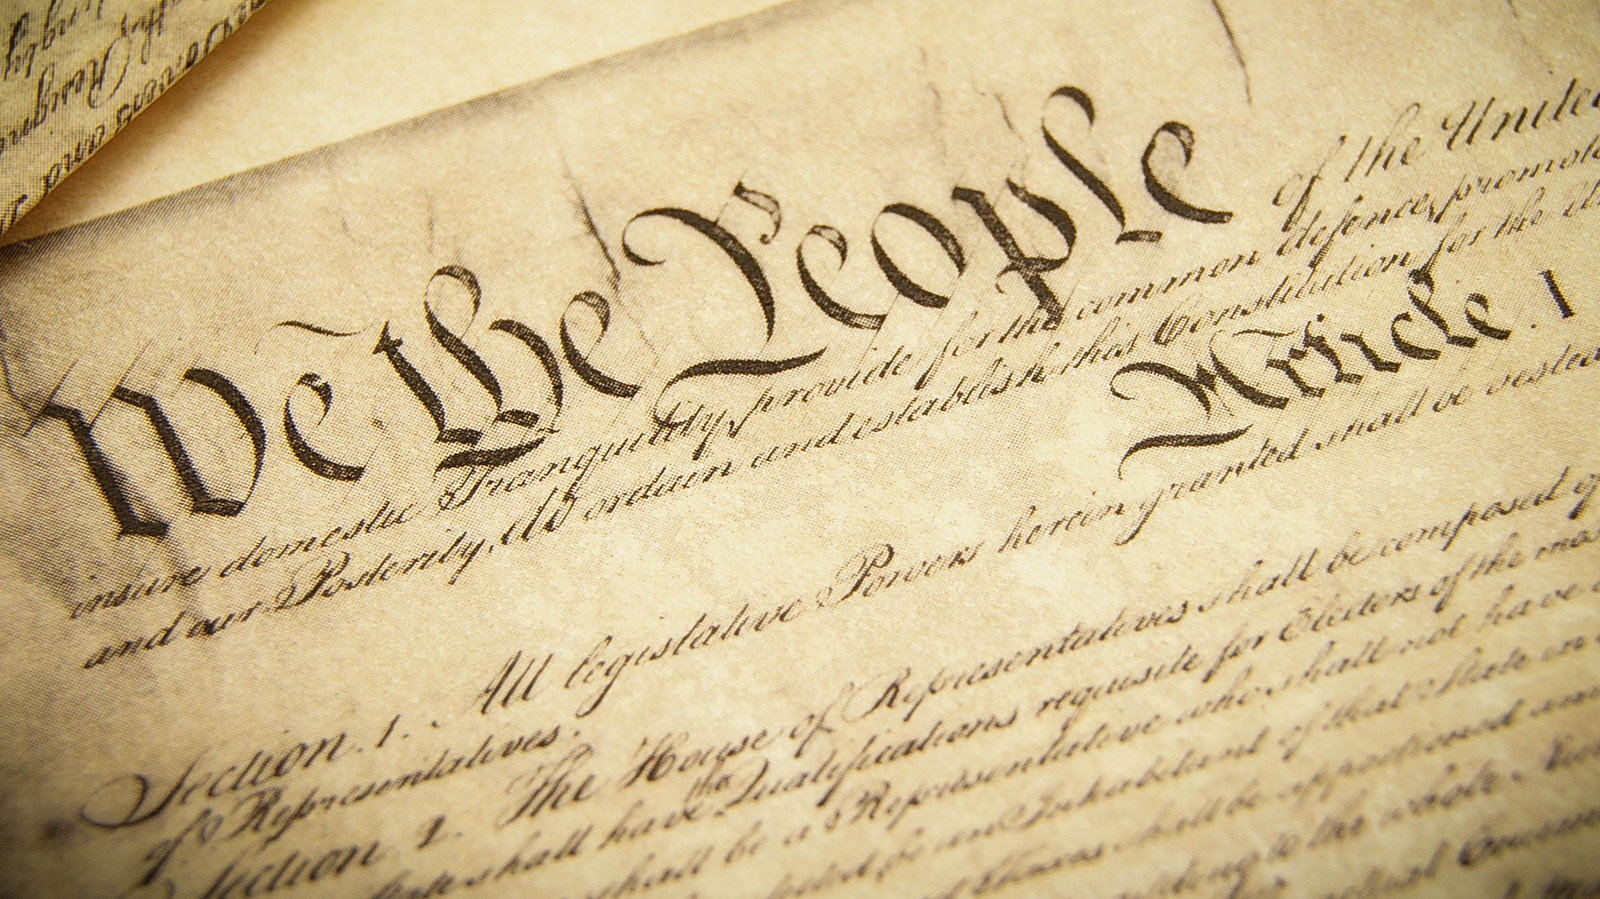 We the People of the United
insure domestic Tranquility, provide for the common defence, promote
and our Posterity, do ordain and establish this Constitution for the
Article. I
Section. 1. All legislative Powers herein granted shall be vested
of Representatives.
Section. 2. The House of Representatives shall be composed of
State shall have the Qualifications requisite for Electors of the most
shall be a Representative who shall not have
be an Inhabitant of that State in
Taxes shall be apportioned
to the whole